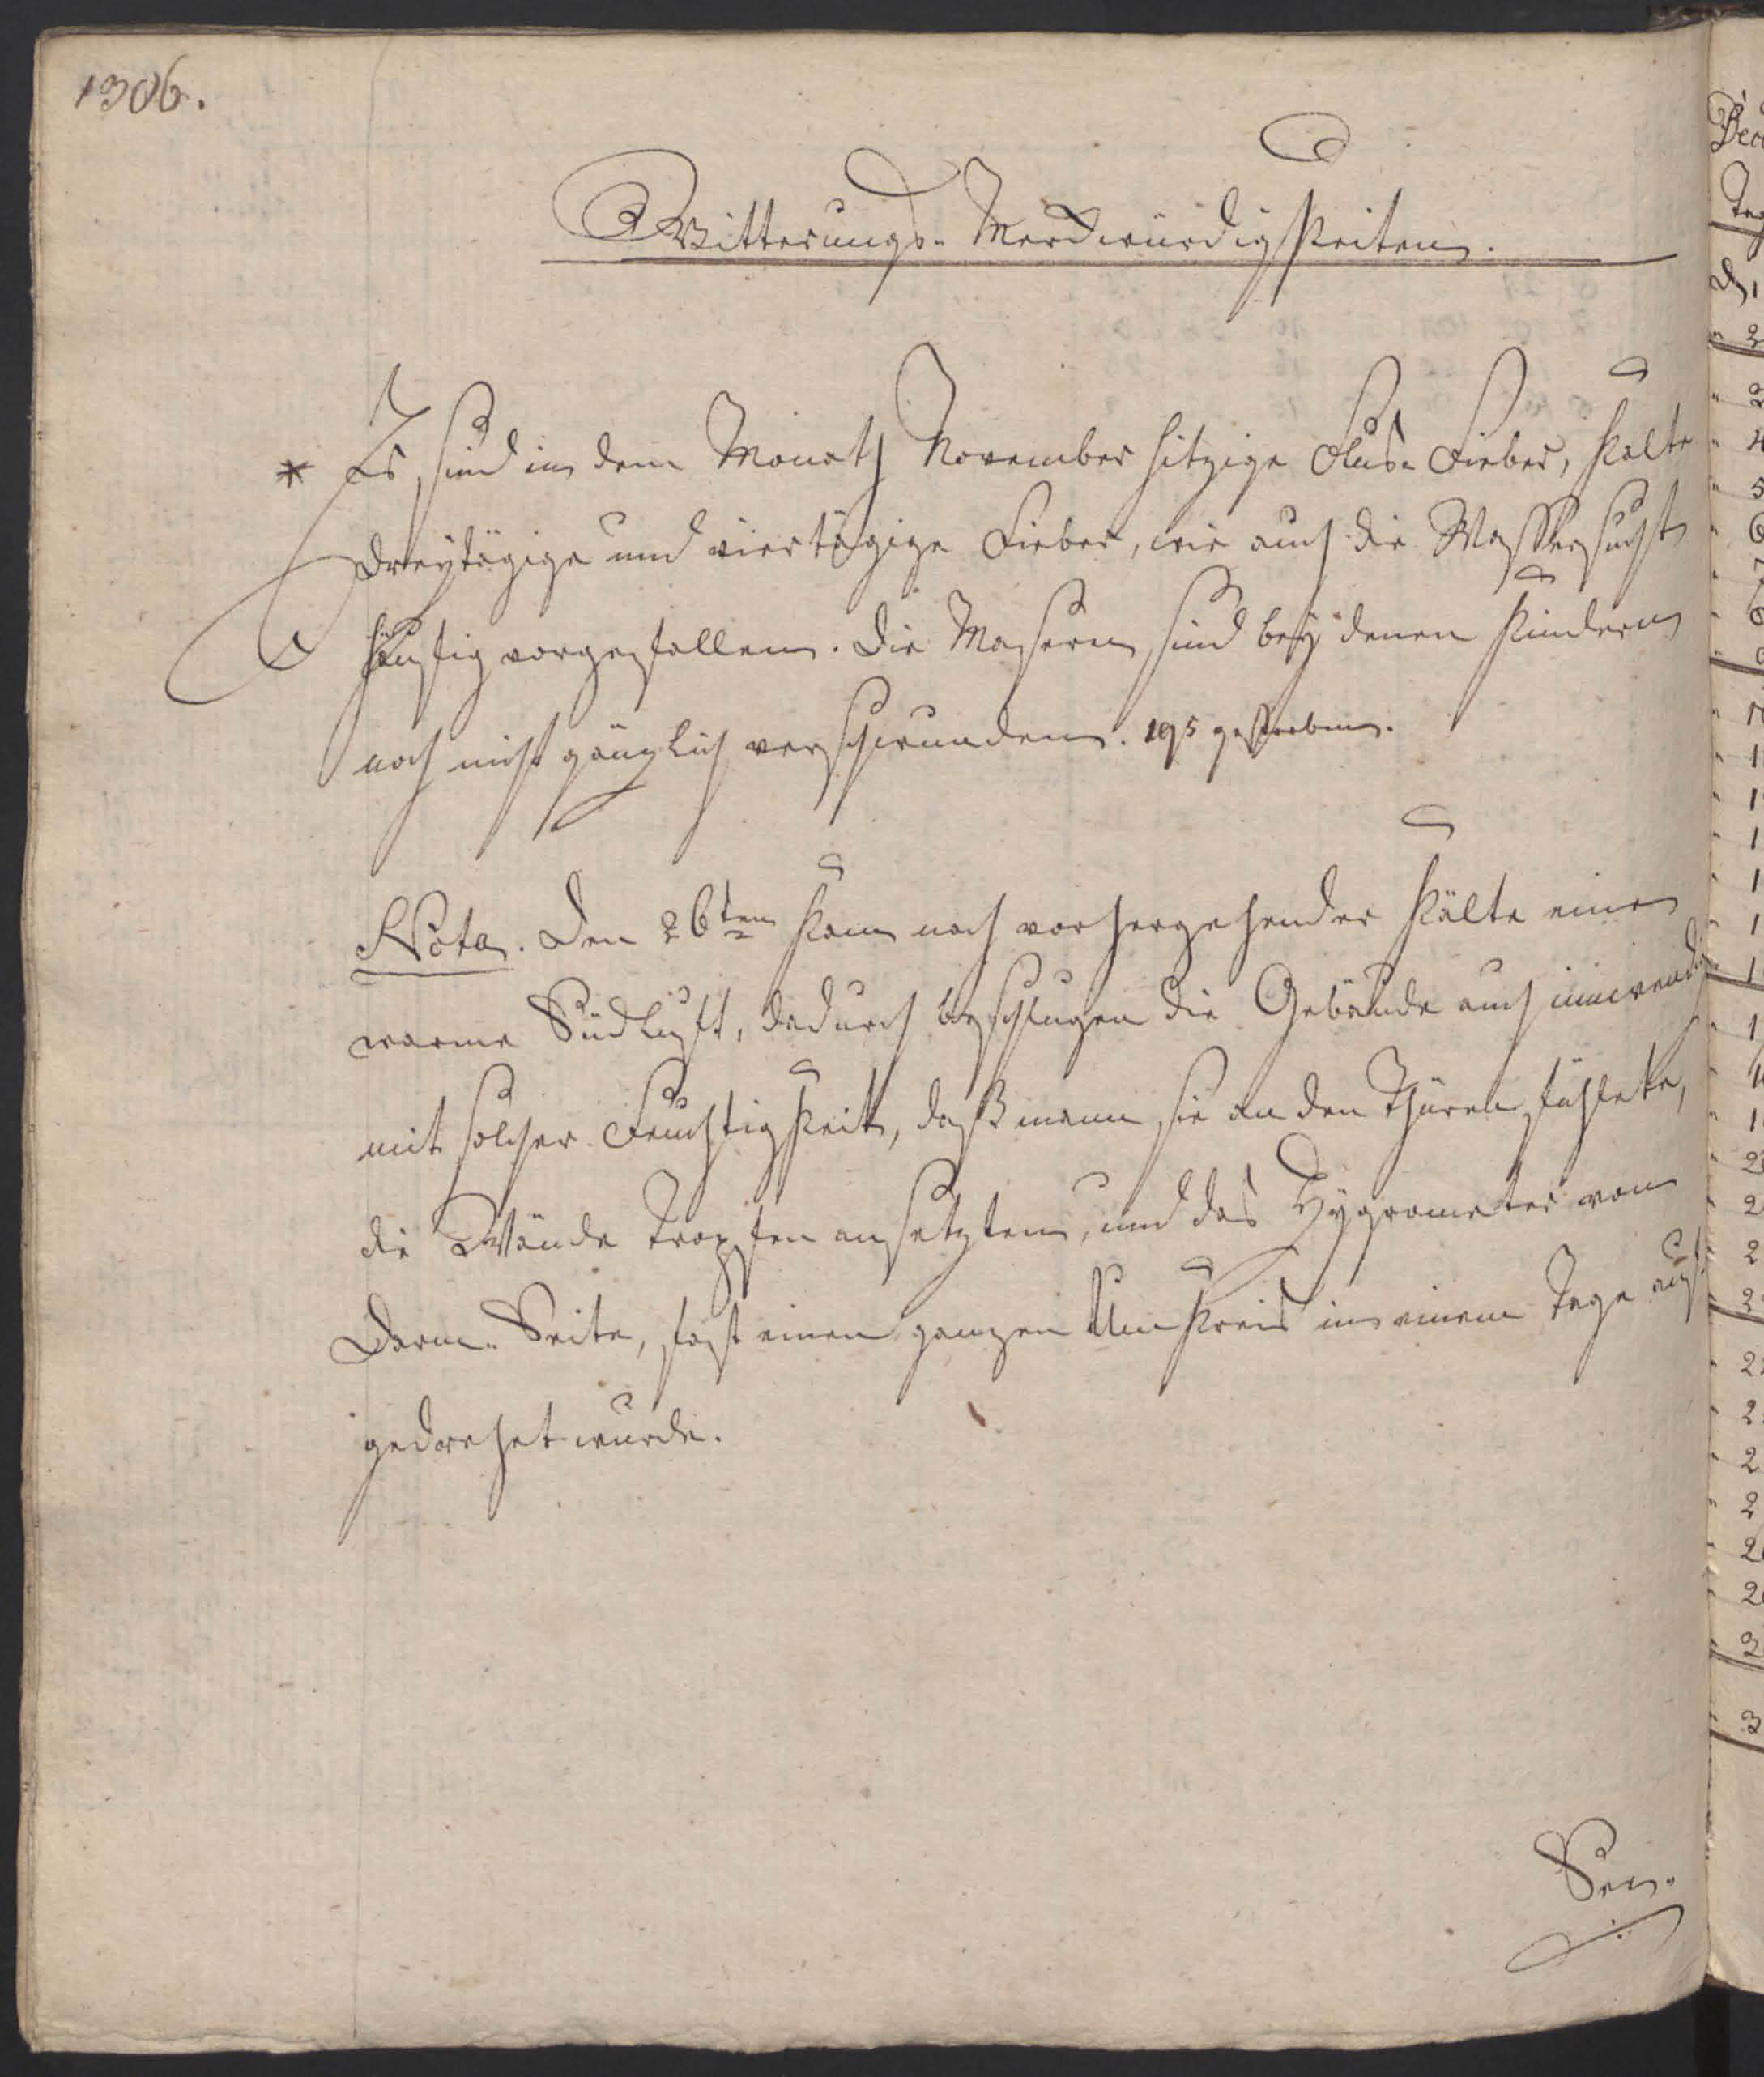 1306.
Witterungs-Merckwürdigkeiten.
* Es sind in dem Monath November hitzige Fluß-Fieber, kalte
dreytägige und viertägige Fieber, wie auch die Wassersucht
häufig vorgefallen. Die Masern sind bey denen Kindern
noch nicht gänzlich verschwunden. 195 gestorben.
Nota. Den 26ten kam nach vorhergehender Kälte eine
warme Südluft, dadurch beschlugen die Gebäude auch inwendig
mit solcher Feuchtigkeit, daß mann sie an den Thüren fühlete,
die Wände Tropfen ansetzten, und das Hygrometer von
Darm-Seite, fast einen ganzen Umkreis in einem Tage auf
gedrehet wurde.